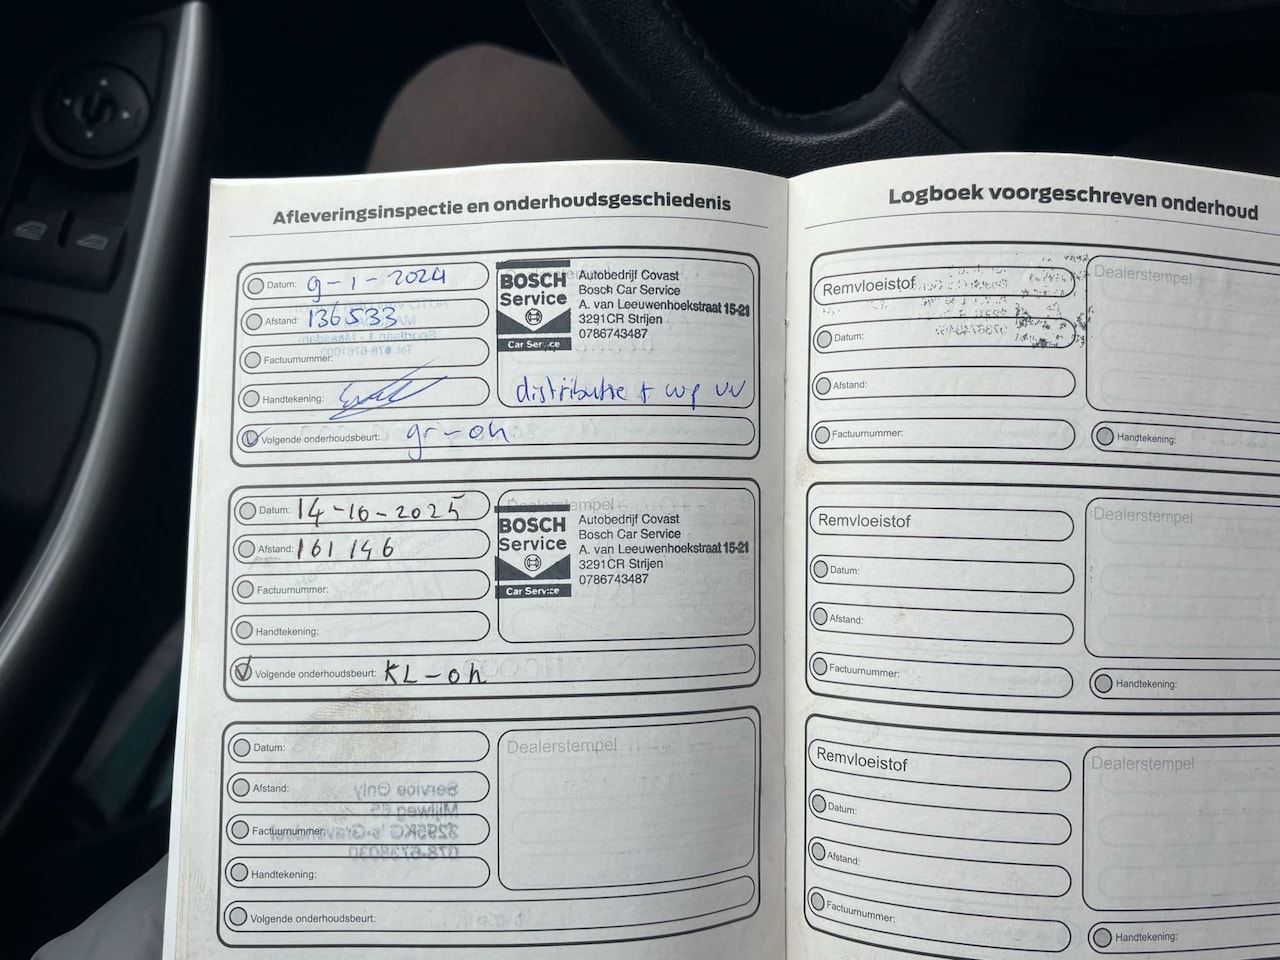 Afleveringsinspectie en onderhoudsgeschiedenis
Datum: 9-1-2024
Afstand: 136533
Factuurnummer:
Handtekening:
Volgende onderhoudsbeurt: gr-oh
BOSCH
Service
Car Service
Autobedrijf Covast
Bosch Car Service
A. van Leeuwenhoekstraat 15-21
3291CR Strijen
0786743487
distributie + wp vv
Datum: 14-10-2025
Afstand: 161146
Factuurnummer:
Handtekening:
Volgende onderhoudsbeurt: KL-oh
Dealerstempel
BOSCH
Service
Car Service
Autobedrijf Covast
Bosch Car Service
A. van Leeuwenhoekstraat 15-21
3291CR Strijen
0786743487
Datum:
Afstand:
Factuurnummer:
Handtekening:
Volgende onderhoudsbeurt:
Dealerstempel
Logboek voorgeschreven onderhoud
Remvloeistof
Datum:
Afstand:
Factuurnummer:
Dealerstempel
Handtekening:
Remvloeistof
Datum:
Afstand:
Factuurnummer:
Dealerstempel
Handtekening:
Remvloeistof
Datum:
Afstand:
Factuurnummer:
Dealerstempel
Handtekening: